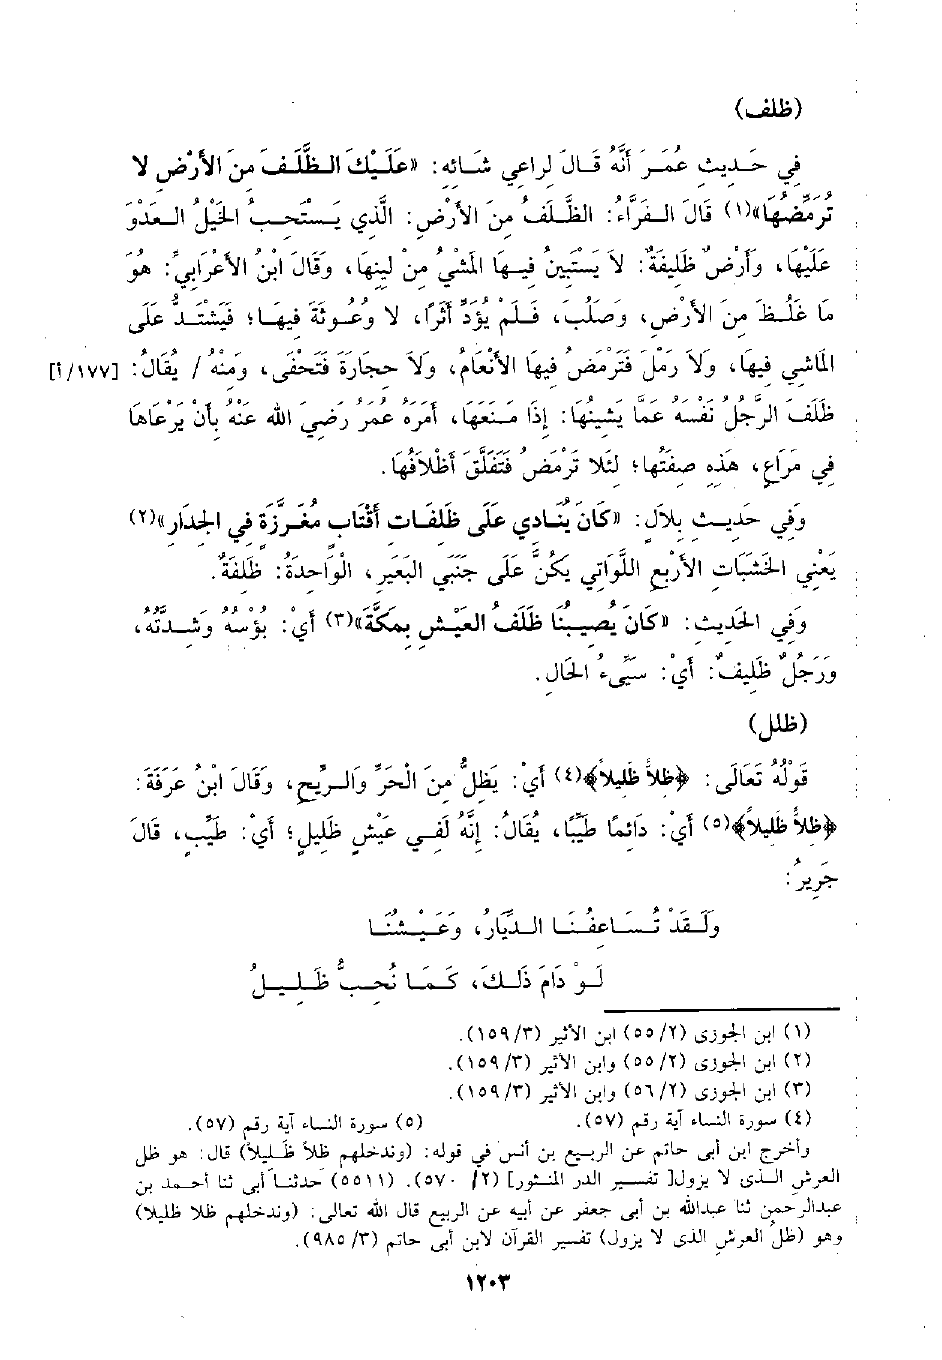 (ظلف)
في حَديث عُمَرَ أَنَّهُ قَالَ لراعي شَائه: «عَلَيْكَ الظَّلَفَ منَ الأَرْض لا
تُرَمِّضُهَا»(١) قَالَ الفَرَّاءُ: الظَّلَفُ منَ الأَرْض: الَّذي يَسْتَحبُّ الخَيْلُ العَدْوَ
عَلَيْهَا، وَأَرْضٌ ظَليفَةٌ: لاَ يَسْتَبينُ فيهَا المَشْيُ منْ لينهَا، وَقَالَ ابْنُ الأَعْرَابيِّ: هُوَ
مَا غَلُظَ منَ الأَرْض، وَصَلُبَ، فَلَمْ يُؤَدِّ أَثَرًا، لا وُعُوثَةَ فيهَا؛ فَيَشْتَدُّ عَلَى
المَاشي فيهَا، وَلاَ رَمْلَ فَتَرْمَضُ فيهَا الأَنْعَامُ، وَلاَ حجَارَةَ فَتَحْفَى، وَمنْهُ / يُقَالُ: [١٧٧/أ]
ظَلَفَ الرَّجُلُ نَفْسَهُ عَمَّا يَشينُهَا: إذَا مَنَعَهَا، أَمَرَهُ عُمَرُ رَضيَ الله عَنْهُ بأَنْ يَرْعَاهَا
في مَرَاعٍ، هَذه صفَتُهَا؛ لئَلا تَرْمَضُ فَتَفَلَّقَ أَظْلاَفُهَا.
وَفي حَديث بلاَلٍ: «كَانَ يُنَادي عَلَى ظَلفَات أَقْتَابٍ مُغَرَّزَة في الجدَار»(٢)
يَعْني الخَشَبَات الأَرْبع اللَّوَاتي يَكُنَّ عَلَى جَنَبَي البَعير، الْوَاحدَةُ: ظَلفَةٌ.
وَفي الحَديث: «كَانَ يُصيبُنَا ظَلَفُ العَيْش بمَكَّةَ»(٣) أَيْ: بُؤْسُهُ وَشدَّتُهُ،
وَرَجُلٌ ظَليفٌ: أَيْ: سَيِّىءُ الحَال.
(ظلل)
قَوْلُهُ تَعَالَى: ﴿ظلاً ظَليلاً﴾(٤) أَيْ: يَظلُّ منَ الْحَرِّ وَالرِّيح، وَقَالَ ابْنُ عَرَفَةَ:
﴿ظلاً ظَليلاً﴾(٥) أَيْ: دَائمًا طَيِّبًا، يُقَالُ: إنَّهُ لَفي عَيْشٍ ظَليلٍ؛ أَيْ: طَيِّبٍ، قَالَ
جَريرُ:
وَلَقَدْ تُسَاعفُنَا الدِّيَارُ، وَعَيْشُنَا
لَوْ دَامَ ذَلكَ، كَمَا نُحبُّ ظَليلُ
(١) ابن الجوزى (٢/ ٥٥) ابن الأثير (٣/ ١٥٩).
(٢) ابن الجوزى (٢/ ٥٥) وابن الأثير (٣/ ١٥٩).
(٣) ابن الجوزى (٢/ ٥٦) وابن الأثير (٣/ ١٥٩).
(٤) سورة النساء آية رقم (٥٧). (٥) سورة النساء آية رقم (٥٧).
وأخرج ابن أبى حاتم عن الربيع بن أنس في قوله: (وندخلهم ظلاً ظليلاً) قال: هو ظل
العرش الذى لا يزول[ تفسير الدر المنثور] (٢/ ٥٧٠). (٥٥١١) حدثنا أبى ثنا أحمد بن
عبدالرحمن ثنا عبدالله بن أبى جعفر عن أبيه عن الربيع قال الله تعالى: (وندخلهم ظلا ظليلا)
وهو (ظل العرش الذى لا يزول) تفسير القرآن لابن أبى حاتم (٣/ ٩٨٥).
١٢٠٣